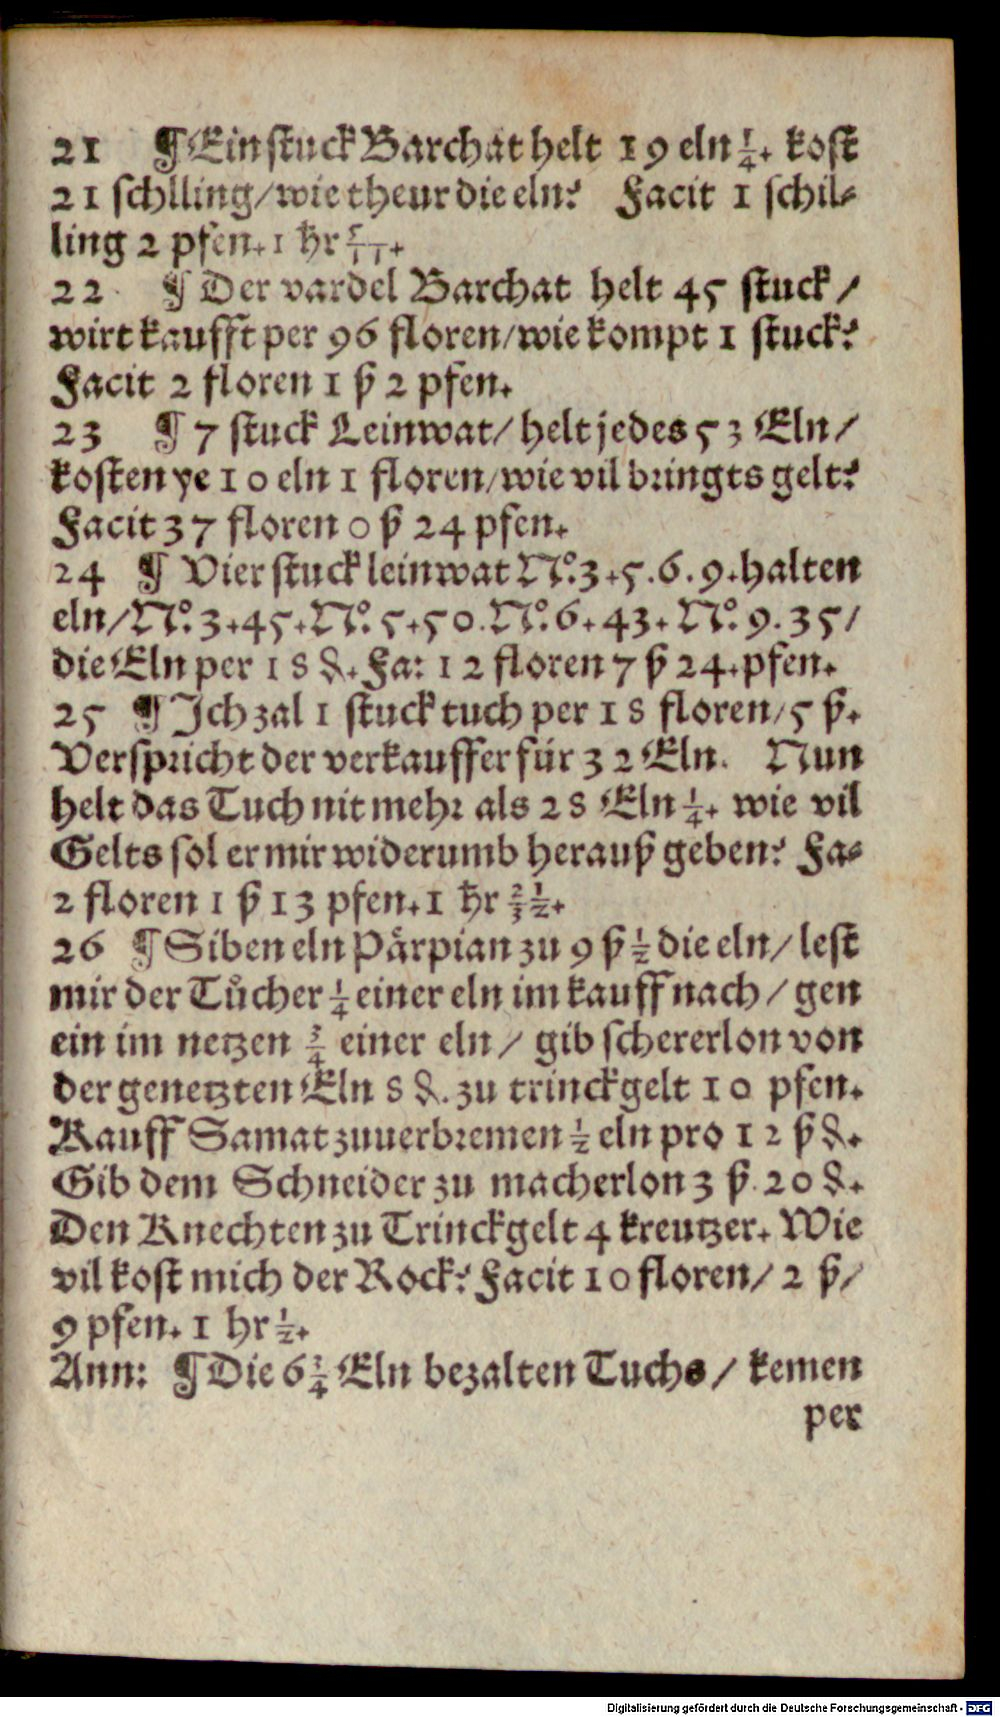 21 ¶ Ein stuck Barchat helt 19 eln 1/4. kost
21 schlling/wie theur die eln? Facit 1 schil⸗
ling 2 pfen. 1 hr 5/11.
22 ¶ Der vardel Barchat helt 45 stuck/
wirt kaufft per 96 floren/wie kompt 1 stuck?
Facit 2 floren 1 ß 2 pfen.
23 ¶ 7 stuck Leinwat/helt jedes 53 Eln/
kosten ye 10 eln 1 floren/wie vil bringts gelt?
Facit 37 floren 0 ß 24 pfen.
24 ¶ Vier stuck leinwat No. 3. 5. 6. 9. halten
eln/No. 3. 45. No. 5. 50. No. 6. 43. No. 9. 35/
die Eln per 18 ₰. Fa: 12 floren 7 ß 24. pfen.
25 ¶ Ich zal 1 stuck tuch per 18 floren/5 ß.
Verspricht der verkauffer für 32 Eln. Nun
helt das Tuch nit mehr als 28 Eln 1/4. wie vil
Gelts sol er mir widerumb herauß geben? Fa⸗
2 floren 1 ß 13 pfen. 1 hr 2/3 1/2.
26 ¶ Siben eln Pårpian zu 9 ß 1/2 die eln/lest
mir der Tůcher 1/4 einer eln im kauff nach/gen
ein im netzen 3/4 einer eln/gib schererlon von
der genetzten Eln 8 ₰. zu trinckgelt 10 pfen.
Kauff Samat zuuerbremen 1/2 eln pro 12 ß ₰.
Gib dem Schneider zu macherlon 3 ß 20 ₰.
Den Knechten zu Trinckgelt 4 kreutzer. Wie
vil kost mich der Rock? Facit 10 floren/2 ß/
9 pfen. 1 hr 1/2.
Ann: ¶ Die 6 3/4 Eln bezalten Tuchs/kemen
per
Digitalisierung gefördert durch die Deutsche Forschungsgemeinschaft - DFG